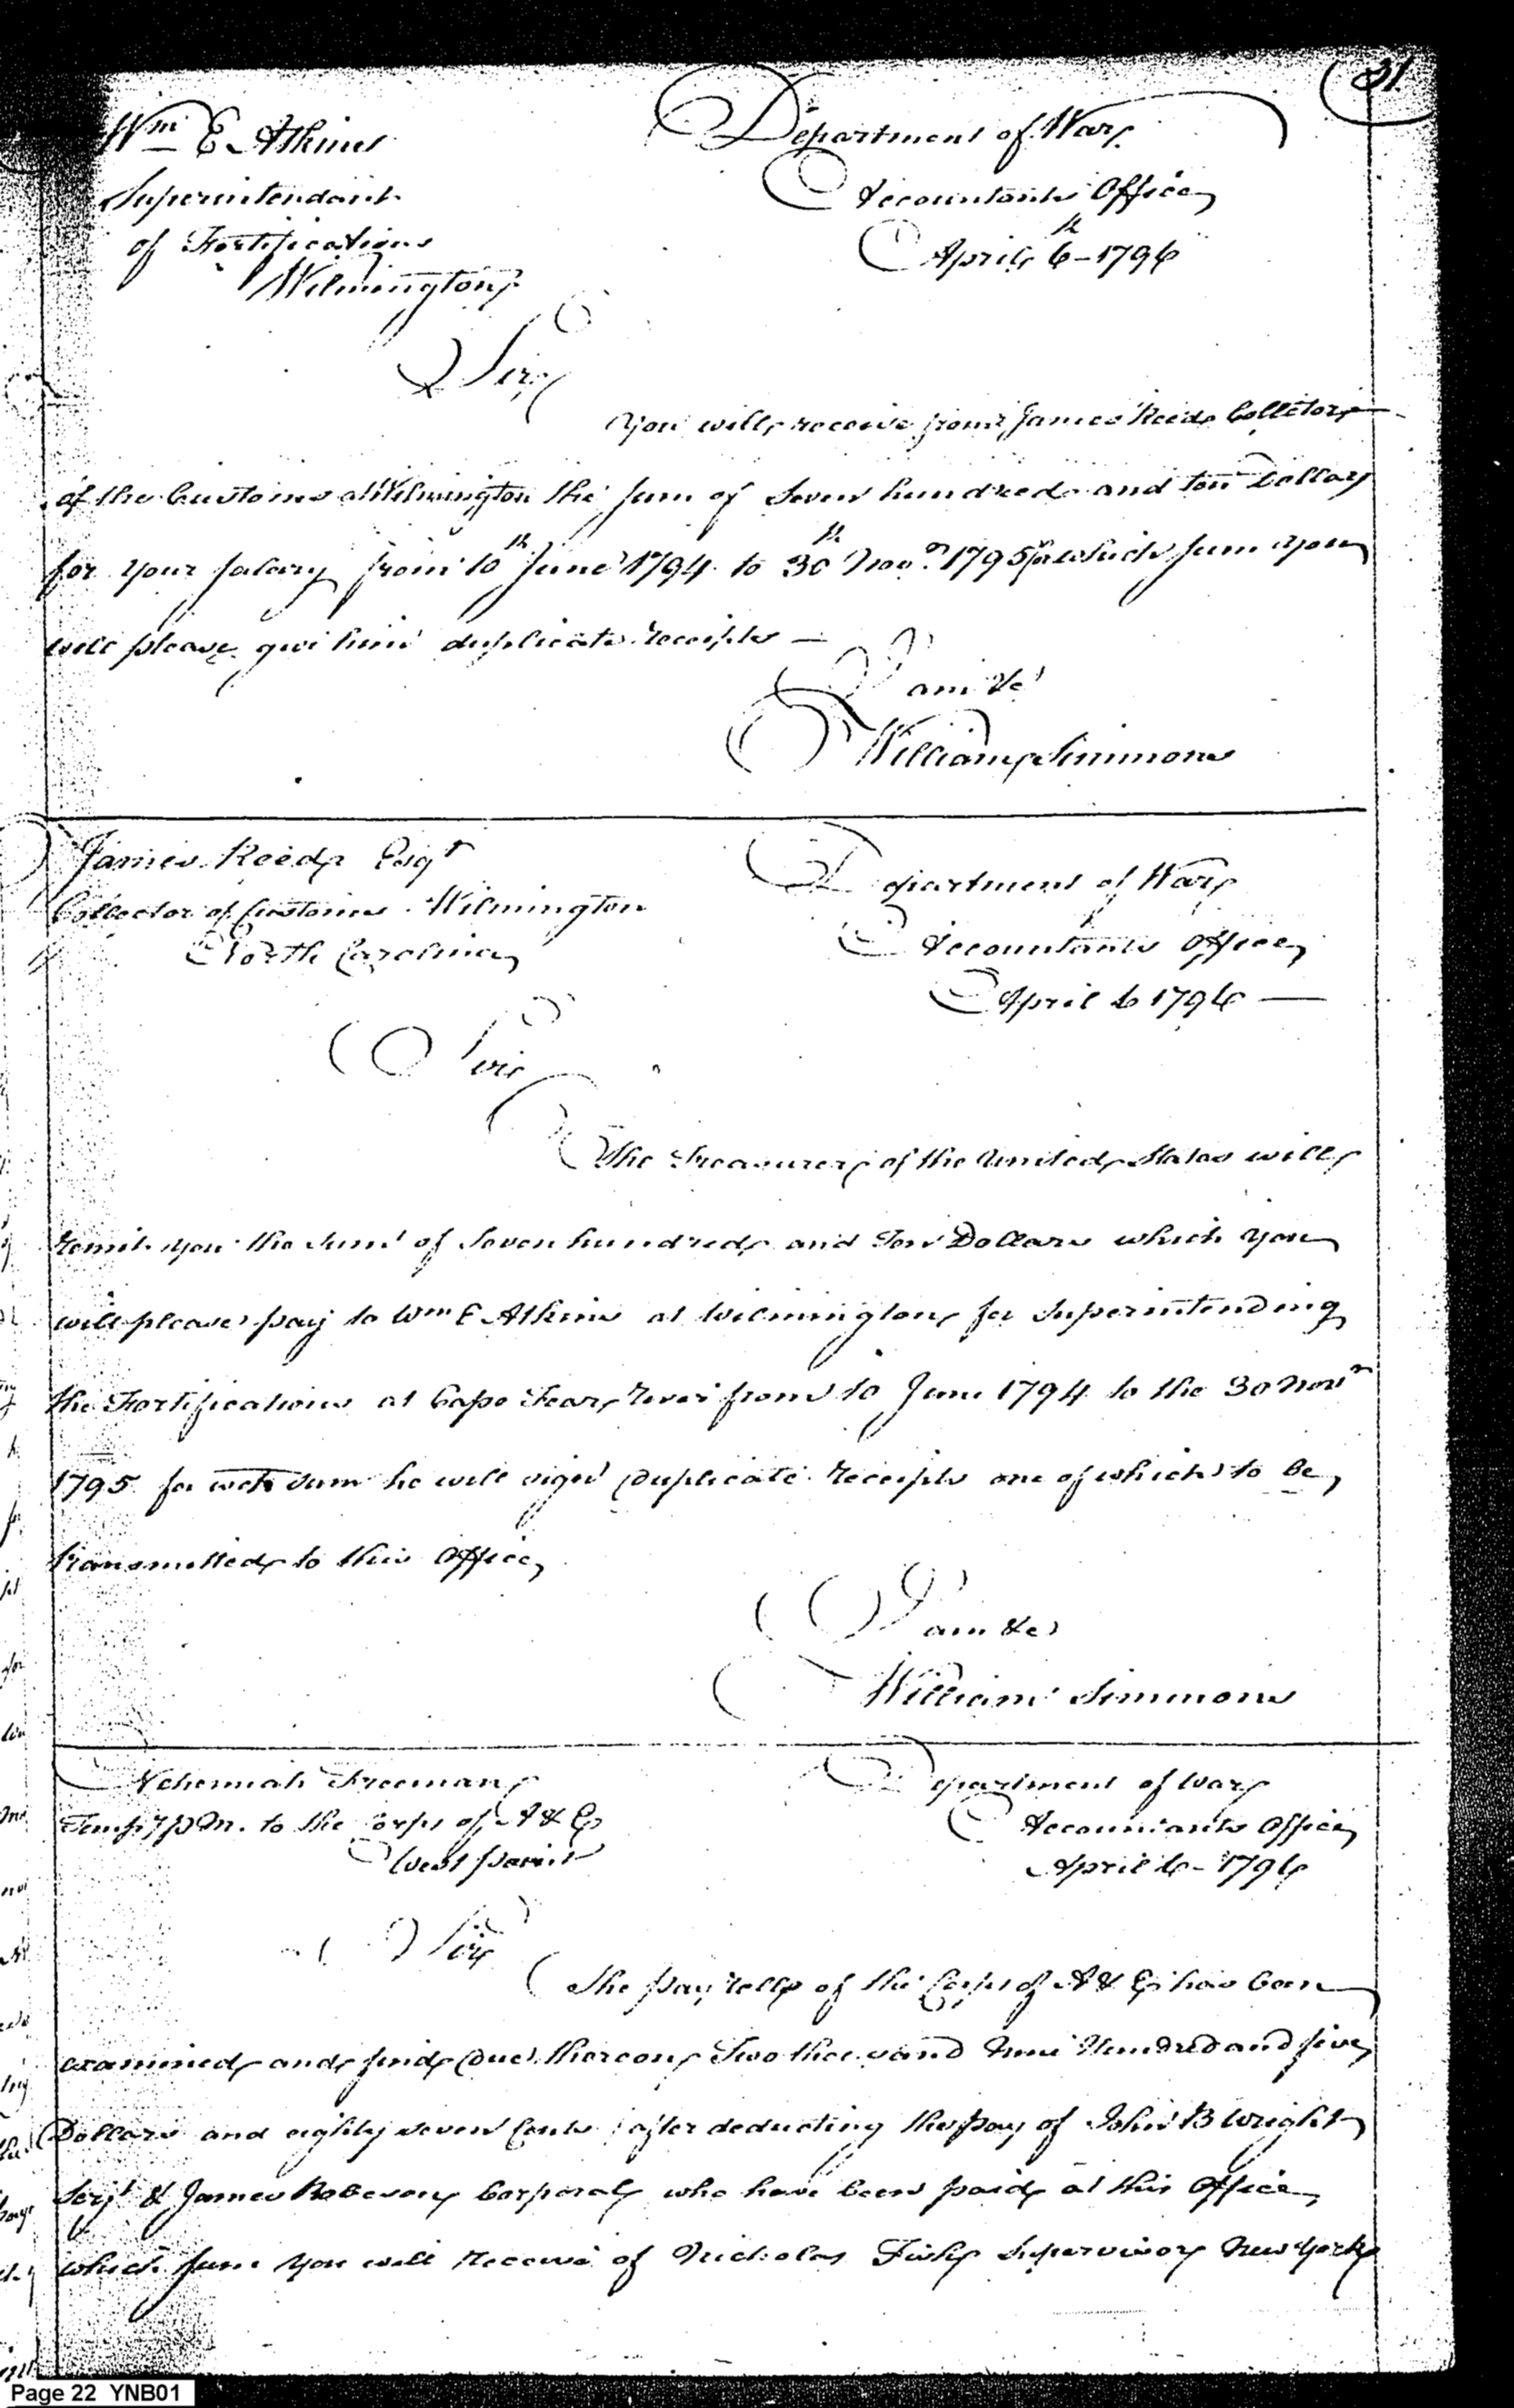 21
Wm E. Atkins
Superintendant
of Fortifications
Wilmington
Department of War
Accountants Office
April 6th 1796
Sir
You will receive from James Reed Colletor
of the Customs at Wilmington the sum of Seven hundred and ten Dollars
for your salary from 10th June 1794 to 30th Novr 1795 for which sum you
will please give him duplicate receipts —
I am &c
William Simmons
James Reed Esqr
Collector of Customs Wilmington
North Carolina
Department of War
Accountants Office
April 6 1796 —
Sir
The Treasurer of the United States will
remit you the sum of Seven hundred and Ten Dollars which you
will please pay to Wm E Atkins at Wilmington for Superintending
the Fortifications at Cape Fear River from 10 June 1794 to the 30 Novr
1795 for wch sum he will sign duplicate receipts one of which to be
transmitted to this Office
I am &c
William Simmons
Nehemiah Freeman
Tempy P.M. to the Corps of A & E
West Point
Department of War
Accountants Office
April 6 - 1796
Sir
The pay rolls of the Corps of A & E has been
examined and find due thereon Two thousand Nine Hundred and five
Dollars and eighty seven Cents after deducting the pay of John B Wright
Serjt & James Roberson Corporal who have been paid at this Office
which sum you will receive of Nicholas Fish Supervisor New York
Page 22 YNB01